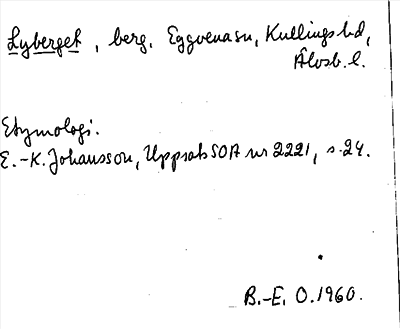 Lyberget, berg, Eggvena sn, Kullings hd,
Älvsb. l.
Etymologi.
E.-K. Johansson, Uppsats SOA nr 2221, s. 24.
B.-E. O. 1960.